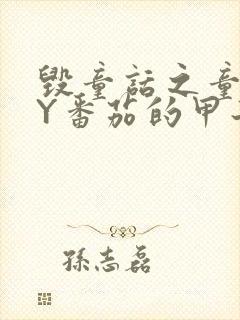 毁童话之童
Y番茄的甲
孙志磊